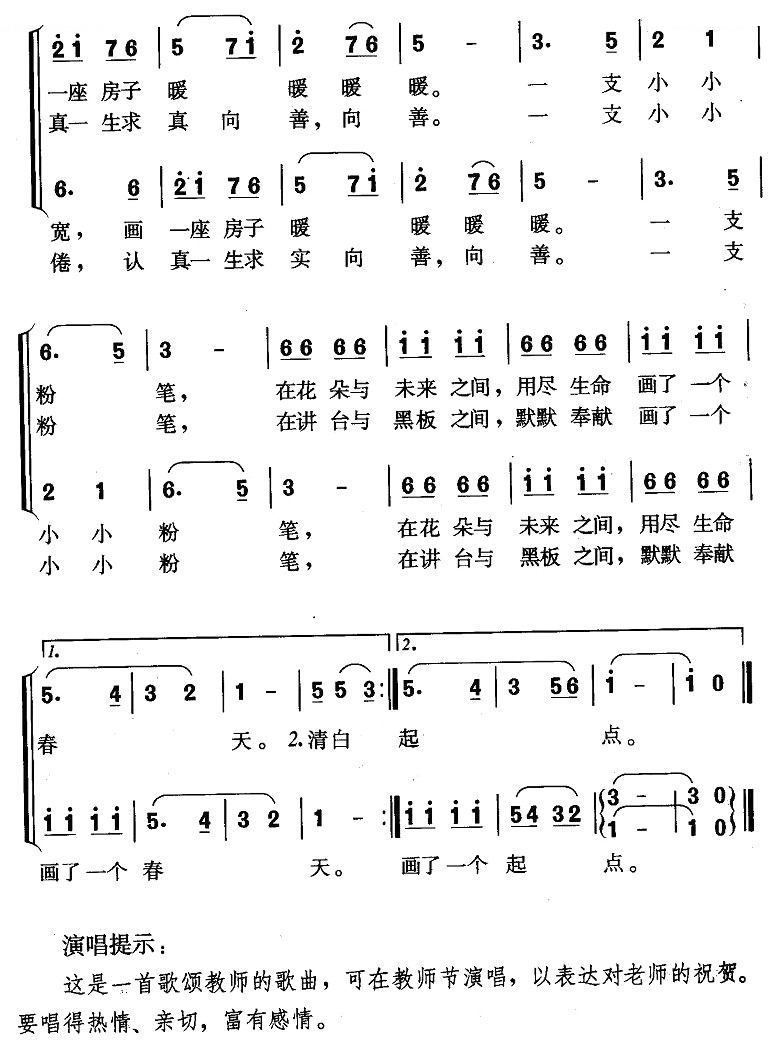 2̇ 1̇ 7 6 | 5 7 1̇ | 2̇ 7 6 | 5 - | 3. 5 | 2 1 |
一座 房子 暖 暖 暖 暖。 一 支 小 小
真一 生求 真 向 善，向 善。 一 支 小 小
6. 6 | 2̇ 1̇ 7 6 | 5 7 1̇ | 2̇ 7 6 | 5 - | 3. 5 |
宽， 画 一座 房子 暖 暖 暖 暖。 一 支
倦， 认 真一 生求 实 向 善，向 善。 一 支
6. 5 | 3 - | 6 6 6 6 | 1̇ 1̇ 1̇ 1̇ | 6 6 6 6 | 1̇ 1̇ 1̇ 1̇ |
粉 笔， 在花 朵与 未来 之间，用尽 生命 画了 一个
粉 笔， 在讲 台与 黑板 之间，默默 奉献 画了 一个
2 1 | 6. 5 | 3 - | 6 6 6 6 | 1̇ 1̇ 1̇ 1̇ | 6 6 6 6 |
小 小 粉 笔， 在花 朵与 未来 之间，用尽 生命
小 小 粉 笔， 在讲 台与 黑板 之间，默默 奉献
1. 2.
5. 4 | 3 2 | 1 - | 5 5 3 :‖ 5. 4 | 3 5 6 | 1̇ - | 1̇ 0 ‖
春 天。 2.清白 起 点。
1̇ 1̇ 1̇ 1̇ | 5. 4 | 3 2 | 1 - :‖ 1̇ 1̇ 1̇ 1̇ | 5 4 3 2 | 3̇ - | 3̇ 0 ‖
1̇ - | 1̇ 0
画了一个 春 天。 画了一个 起 点。
演唱提示：
这是一首歌颂教师的歌曲，可在教师节演唱，以表达对老师的祝贺。
要唱得热情、亲切，富有感情。